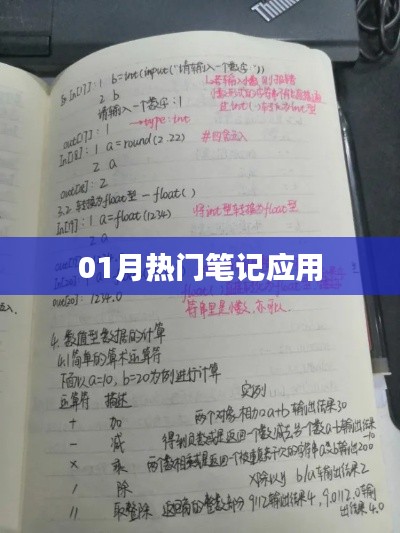 In[7]: 1 b=int(input('请输入一个数字'))
2 b
请输入一个数字:1
→type:int
out[7]: 1
In[8]: 1 a=round(2.22) #四舍五入
2 a
out[8]: 2
3.2 转换为float型 - float()
In[9]: 1 a=float(1234) 将int型转换为float型
01月热门笔记应用
out[20]: 1234.0
符串里是小数,亦可以.
4. 数值型数据的计算
4.1 简单的算术运算符
下面以a=10, b=20为例进行计算
运算符 描述 实例
+ 加 两个对象相加 a+b 输出结果30
- 减 得到负数或是返回一个数减去另一个数 a-b 输出结果-10
× 乘 两个数相乘或是返回一个被重复若干次的字符串 a*b 输出200
/ 除 x除以y b/a 输出结果2
// 取整除 返回商的整数部分 9//2 输出结果4, 9.0//2.0 输出4.0